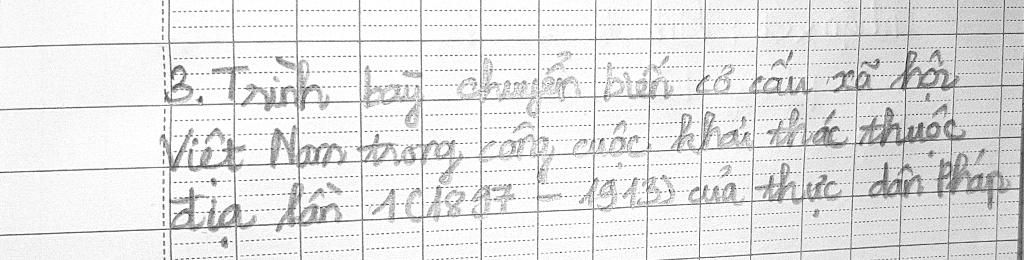 3. Trình bày chuyển biến cơ cấu xã hội
Việt Nam trong công cuộc khai thác thuộc
địa lần 1 (1897 - 1913) của thực dân Pháp